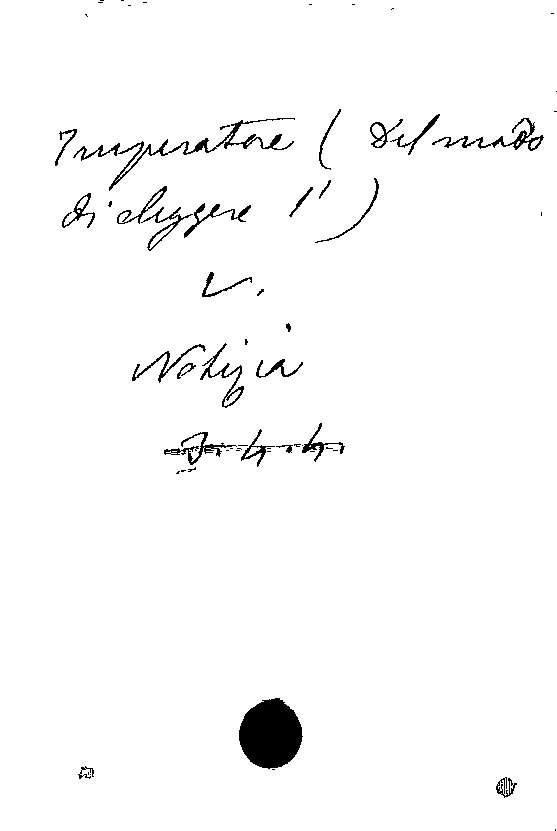 Imperatore ( Del modo
di eleggere l' )
V.
Notizia
3. 4. 4.